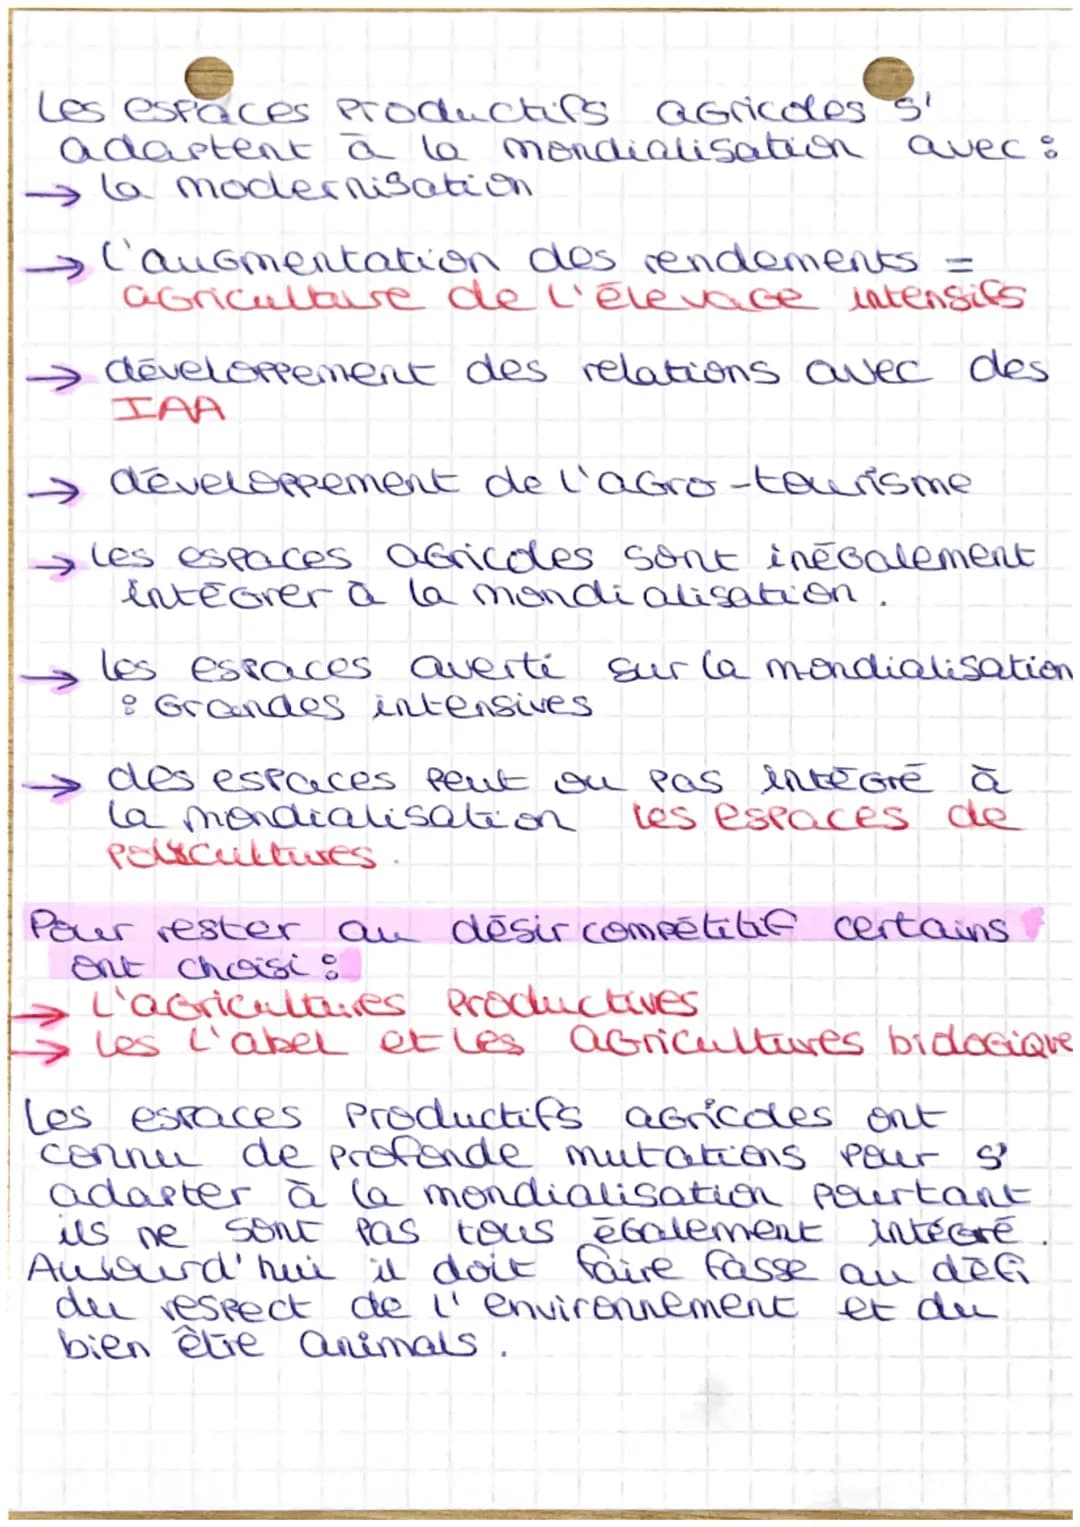 Les espaces productifs agricoles s'
adaptent à la mondialisation avec :
→ la modernisation
→ l'augmentation des rendements =
agriculture de l'élevage intensifs
→ développement des relations avec des
IAA
→ développement de l'agro-tourisme
→ les espaces agricoles sont inégalement
intégrer à la mondialisation.
→ les espaces averti sur la mondialisation
: Grandes intensives
→ des espaces peut ou pas intégré à
la mondialisation les espaces de
polycultures.
Pour rester au désir compétitif certains
ont choisi :
→ L'agricultures productives
→ les l'abel et les agricultures biologique
Les espaces productifs agricoles ont
connu de profonde mutations pour s'
adapter à la mondialisation pourtant
ils ne sont pas tous également intégré.
Aujourd'hui il doit faire fasse au défi
du respect de l'environnement et du
bien être animals.